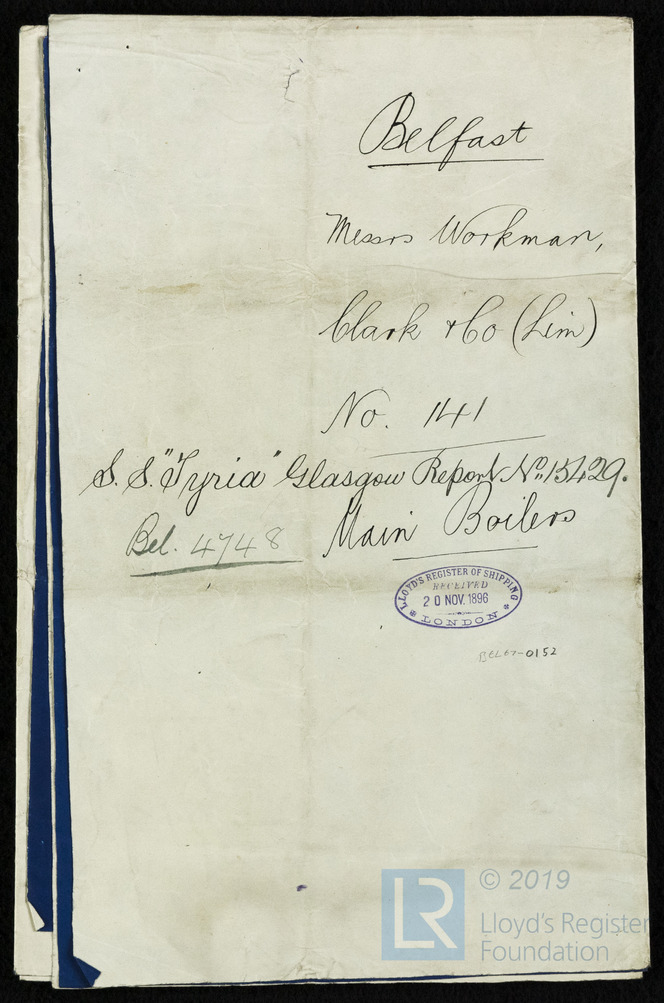 Belfast
Messrs Workman,
Clark & Co (Lim)
No. 141
S. S. "Tyria" Glasgow Report No. 15429.
Bel. 4748
Main Boilers
LLOYD'S REGISTER OF SHIPPING
RECEIVED
20 NOV. 1896
LONDON
BEL67-0152
LR
© 2019
Lloyd's Register
Foundation